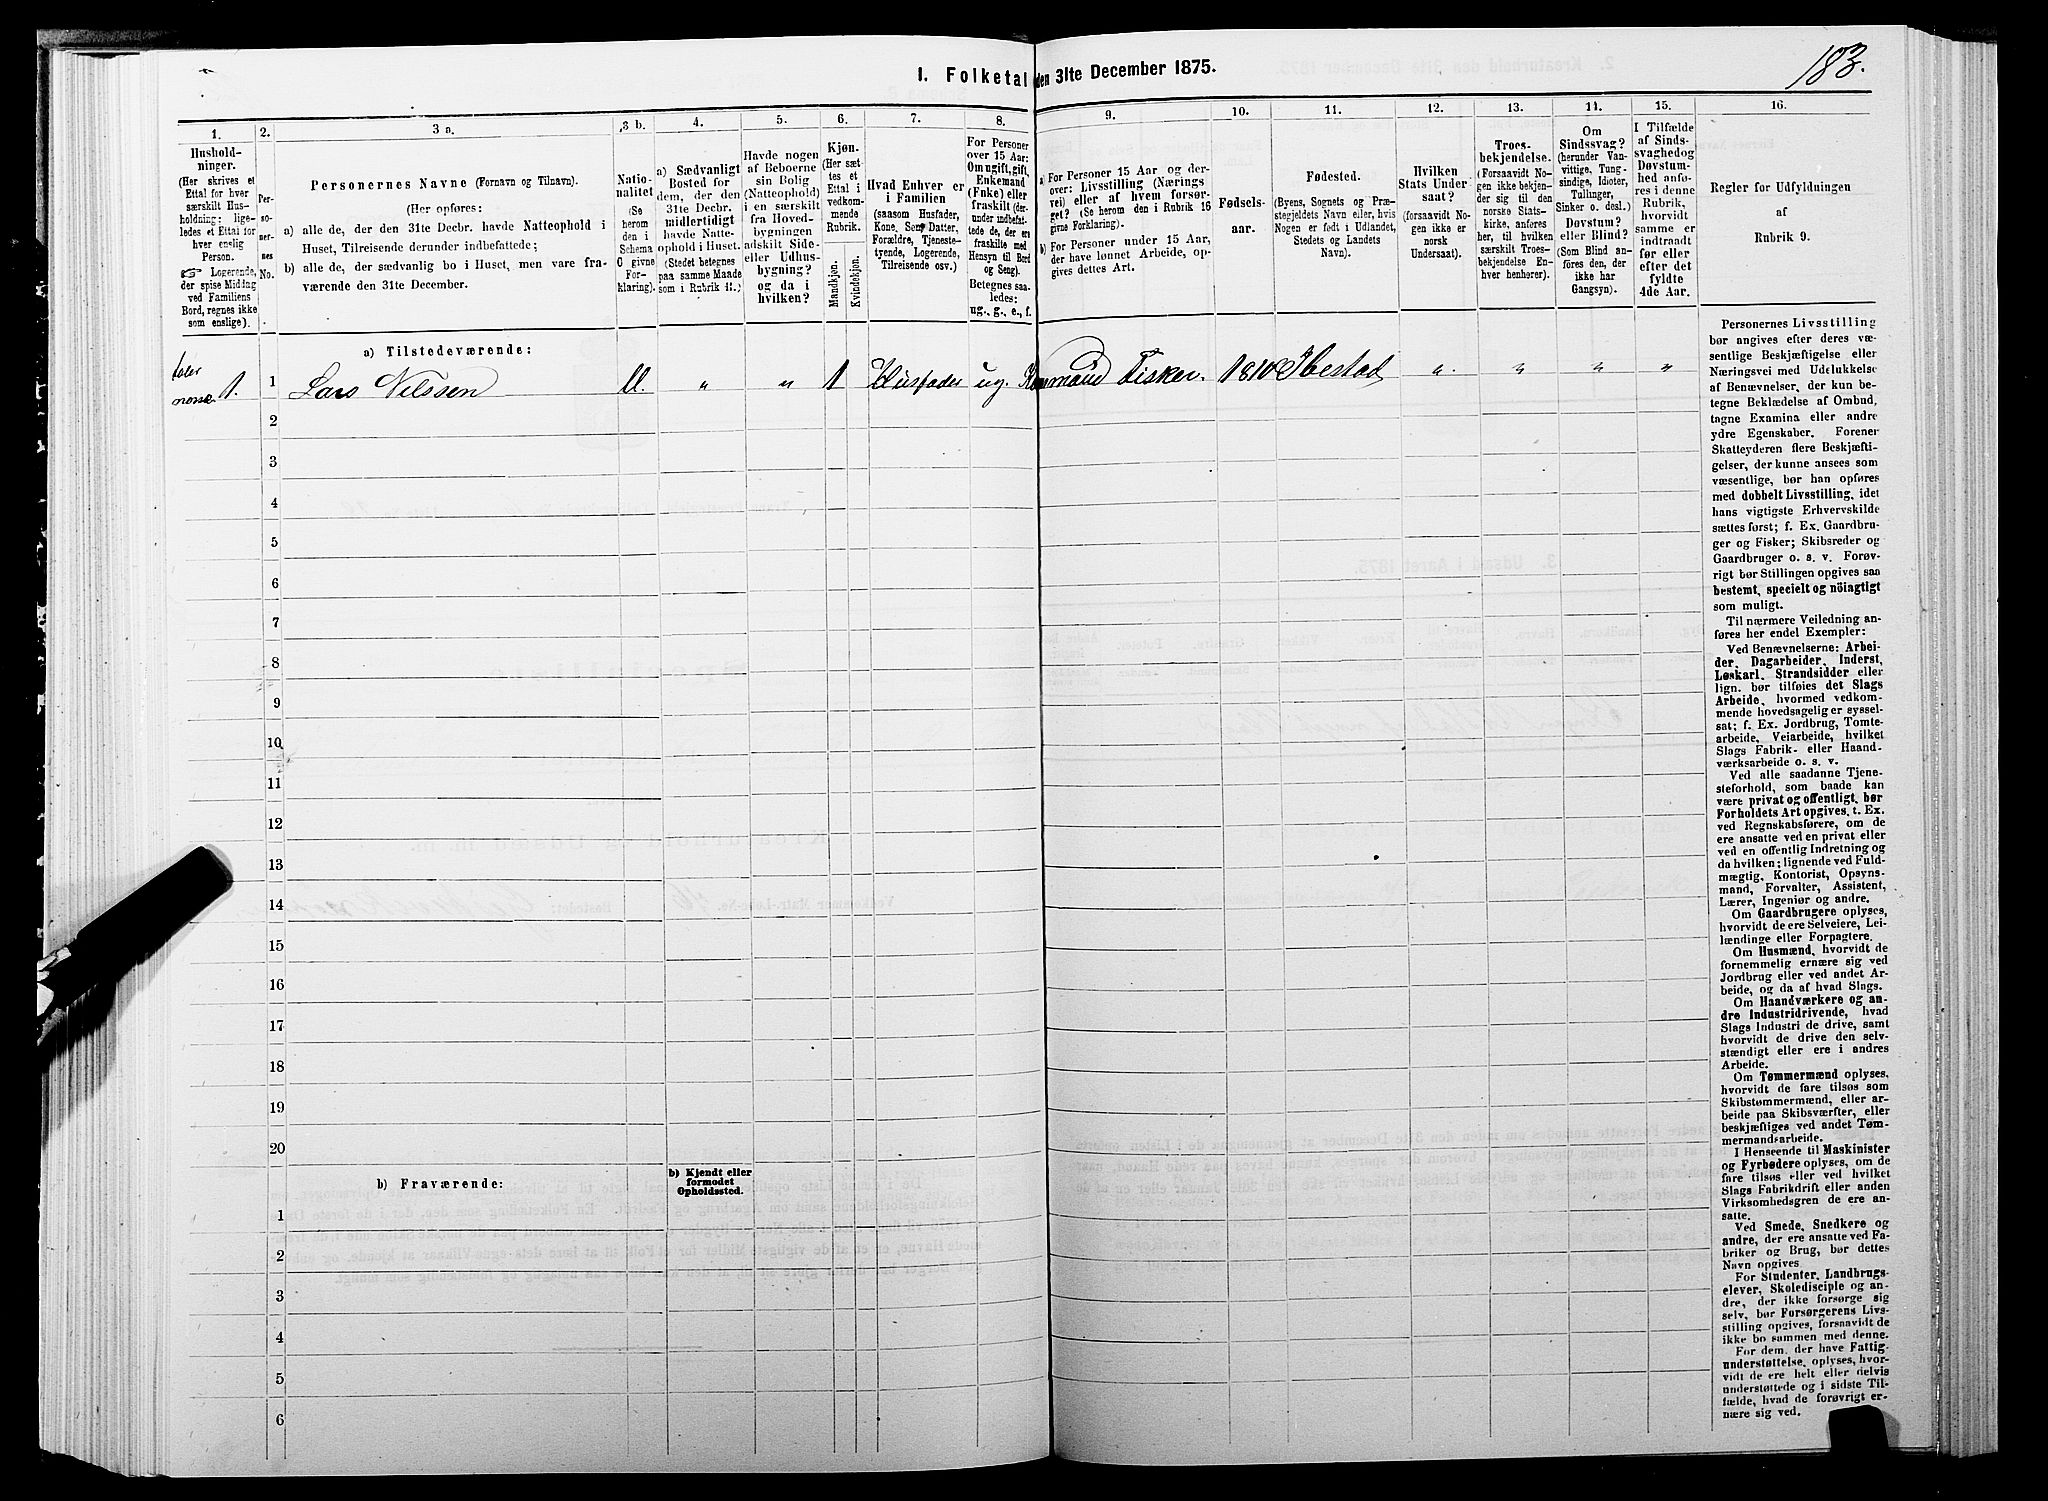 183.
I. Folketal den 31te December 1875.
1.
Hushold-
ninger.
(Her skrives et
Ettal for hver
særskilt Hus-
holdning; lige-
ledes et Ettal for
hver enslig
Person.
☞ Logerende,
der spise Middag
ved Familiens
Bord, regnes ikke
som enslige).
2.
Per-
so-
ner-
nes
No.
3 a.
Personernes Navne (Fornavn og Tilnavn).
(Her opføres:
a) alle de, der den 31te Decbr. havde Natteophold i
Huset, Tilreisende derunder indbefattede;
b) alle de, der sædvanlig bo i Huset, men vare fra-
værende den 31te December.
3 b.
Natio-
nalitet
(Se
herom
den i
Schema
C givne
For-
klaring).
4.
a) Sædvanligt
Bosted for
dem, der den
31te Decbr.
midlertidigt
havde Natte-
ophold i Huset.
(Stedet betegnes
paa samme Maade
som i Rubrik 11.)
5.
Havde nogen
af Beboerne
sin Bolig
(Natteophold)
i en særskilt
fra Hoved-
bygningen
adskilt Side-
eller Udhus-
bygning?
og da i
hvilken?
6.
Kjøn.
(Her sæt-
tes et
Ettal i
vedkom-
mende
Rubrik.
Mandkjøn.
Kvindekjøn.
7.
Hvad Enhver er
i Familien
(saasom Husfader,
Kone, Søn, Datter,
Forældre, Tjeneste-
tyende, Logerende,
Tilreisende osv.)
8.
For Personer
over 15 Aar:
Om ugift, gift,
Enkemand
(Enke) eller
fraskilt (der-
under indbefat-
tede de, der ere
fraskilte med
Hensyn til Bord
og Seng).
Betegnes saa-
ledes:
ug., g., e., f.
9.
a) For Personer 15 Aar og der-
over: Livsstilling (Nærings
vei) eller af hvem forsør-
get? (Se herom den i Rubrik 16
givne Forklaring).
b) For Personer under 15 Aar,
der have lønnet Arbeide, op-
gives dettes Art.
10.
Fødsels-
aar.
11.
Fødested.
(Byens, Sognets og Præ-
stegjeldets Navn eller, hvis
Nogen er født i Udlandet,
Stedets og Landets
Navn).
12.
Hvilken
Stats Under-
saat?
(forsaavidt No-
gen ikke er
norsk
Undersaat).
13.
Troes-
bekjendelse.
(Forsaavidt No-
gen ikke bekjen-
der sig til den
norske Stats-
kirke, anføres
her, til hvilken
særskilt Troes-
bekjendelse En-
hver henhører).
14.
Om
Sindssvag?
(herunder Van-
vittige, Tung-
sindige, Idioter,
Tullinger,
Sinker o. desl.)
Døvstum?
eller Blind?
(Som Blind an-
føres den, der
ikke har
Gangsyn).
15.
I Tilfælde
af Sinds-
svaghed og
Døvstum-
hed anfø-
res i denne
Rubrik,
hvorvidt
samme er
indtraadt
før eller
efter det
fyldte
4de Aar.
16.
Regler for Udfyldningen
af
Rubrik 9.
a) Tilstedeværende:
1. 1 Lars Nilssen U. „ „ 1 Husfader ug. Fisker. 1810 Ibestad „ „ „ „
2
3
4
5
6
7
8
9
10
11
12
13
14
15
16
17
18
19
20
b) Fraværende:
b) Kjendt eller
formodet
Opholdssted.
1
2
3
4
5
6
Personernes Livsstilling
bør angives efter deres væ-
sentlige Beskjæftigelse eller
Næringsvei med Udelukkelse
af Benævnelser, der kun be-
tegne Beklædelse af Ombud,
tagne Examina eller andre
ydre Egenskaber. Forener
Skatteyderen flere Beskjæfti-
gelser, der kunne ansees som
væsentlige, bør han opføres
med dobbelt Livsstilling, idet
hans vigtigste Erhvervskilde
sættes først; f. Ex. Gaardbru-
ger og Fisker; Skibsreder og
Gaardbruger o. s. v. Forøv-
rigt bør Stillingen opgives saa
bestemt, specielt og nöiagtigt
som muligt.
Til nærmere Veiledning an-
føres her endel Exempler:
Ved Benævnelserne: Arbei-
der, Dagarbeider, Inderst,
Løskarl, Strandsidder eller
lign. bør tilføies det Slags
Arbeide, hvormed vedkom-
mende hovedsagelig er syssel-
sat; f. Ex. Jordbrug, Tomte-
arbeide, Veiarbeide, hvilket
Slags Fabrik- eller Haand-
værksarbeide o. s. v.
Ved alle saadanne Tjene-
steforhold, som baade kan
være privat og offentligt, bør
Forholdets Art opgives, t. Ex.
ved Regnskabsførere, om de
ere ansatte ved en privat eller
ved en offentlig Indretning og
da hvilken; lignende ved Fuld-
mægtig, Kontorist, Opsyns-
mand, Forvalter, Assistent,
Lærer, Ingeniør og andre.
Om Gaardbrugere oplyses,
hvorvidt de ere Selveiere, Lei-
lændinge eller Forpagtere.
Om Husmænd, hvorvidt de
fornemmelig ernære sig ved
Jordbrug eller ved andet Ar-
beide, og da af hvad Slags.
Om Haandværkere og an-
dre Industridrivende, hvad
Slags Industri de drive, samt
hvorvidt de drive den selv-
stændigt eller ere i andres
Arbeide.
Om Tømmermænd oplyses,
hvorvidt de fare tilsøs som
Skibstømmermænd, eller ar-
beide paa Skibsværfter, eller
beskjæftiges ved andet Tøm-
mermandsarbeide.
I Henseende til Maskinister
og Fyrbødere oplyses, om de
fare tilsøs eller ved hvilket
Slags Fabrikdrift eller anden
Virksomhedsgren de ere an-
satte.
Ved Smede, Snedkere og
andre, der ere ansatte ved Fa-
briker og Brug, bør dettes
Navn opgives.
For Studenter, Landbrugs-
elever, Skoledisciple og an-
dre, der ikke forsørge sig
selv, bør Forsørgerens Livs-
stilling opgives, forsaavidt de
ikke bo sammen med denne.
For dem, der have Fattig-
understøttelse, oplyses, hvor-
vidt de ere helt eller delvis
understøttede og i sidste Til-
fælde, hvad de forøvrigt er-
nære sig ved.